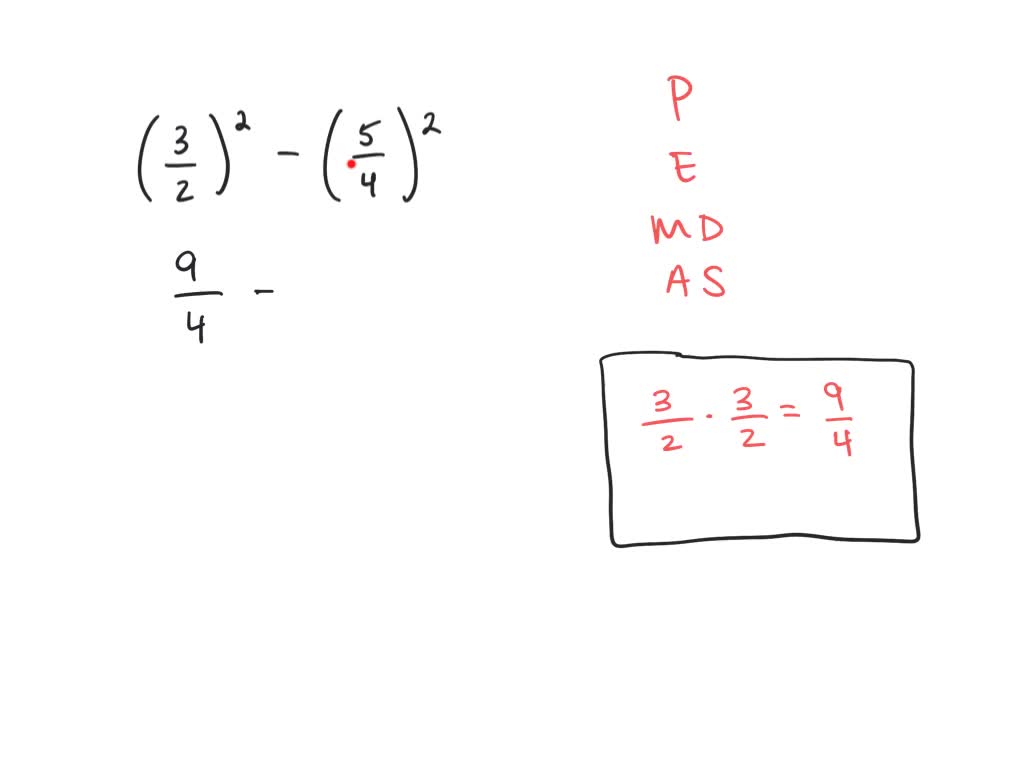 (3/2)² - (5/4)²
9/4 -
P
E
M D
A S
3/2 · 3/2 = 9/4